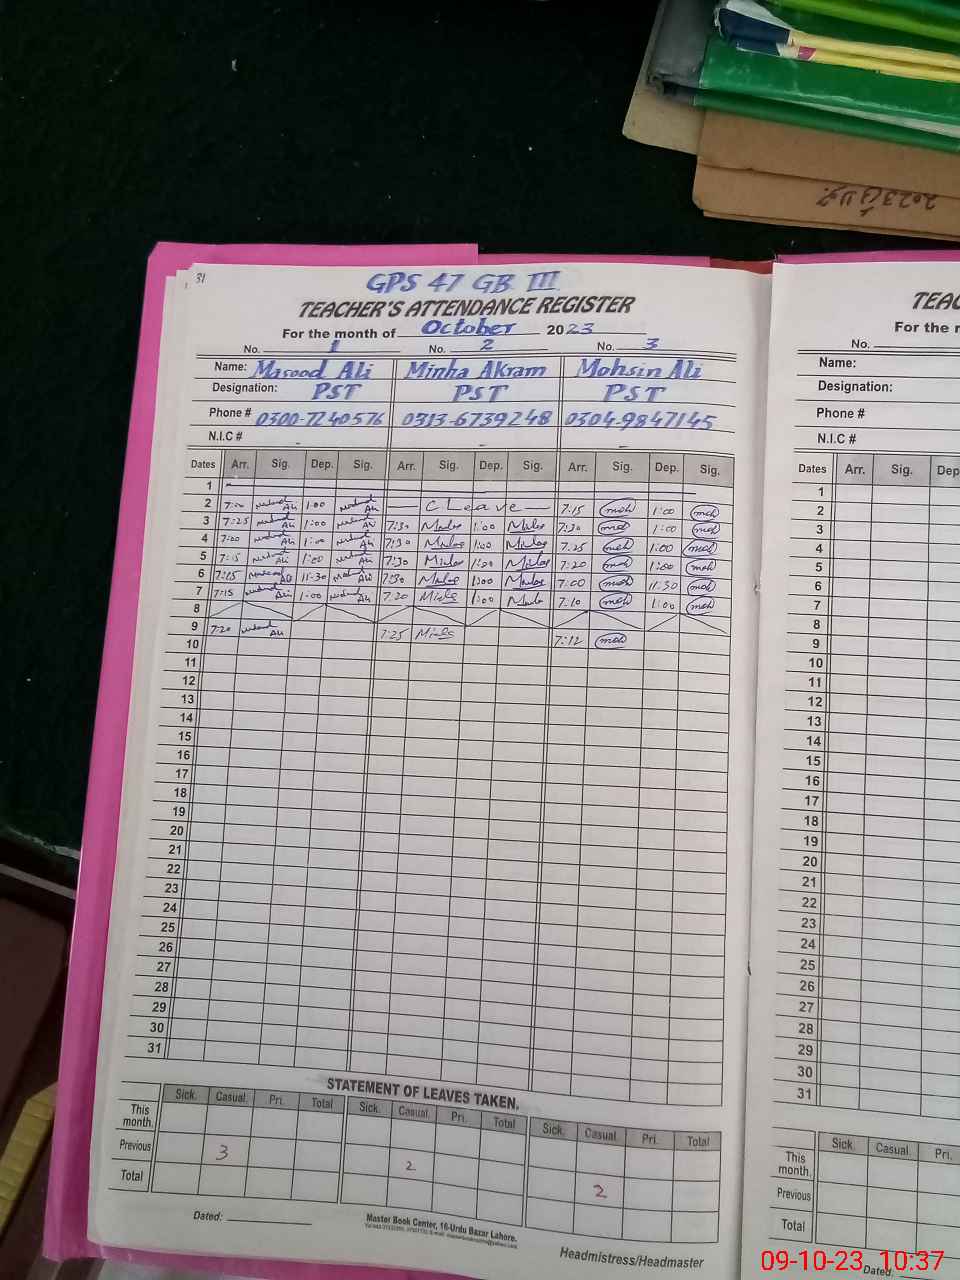 2023 جولائی
31
GPS 47 GB III
TEACHER'S ATTENDANCE REGISTER
For the month of October 2023
No. 1 No. 2 No. 3
Name: Masood Ali Minha Akram Mohsin Ali
Designation: PST PST PST
Phone # 0300-7240576 0313-6739248 0304-9847145
N.I.C # - - -
Dates Arr. Sig. Dep. Sig. Arr. Sig. Dep. Sig. Arr. Sig. Dep. Sig.
1
2 7:20 Masood Ali 1:00 Masood Ali C Leave 7:15 moh 1:00 moh
3 7:25 Masood Ali 1:00 Masood Ali 7:30 Minha 1:00 Minha 7:30 moh 1:00 moh
4 7:20 Masood Ali 1:00 Masood Ali 7:30 Minha 1:00 Minha 7:25 moh 1:00 moh
5 7:15 Masood Ali 1:00 Masood Ali 7:30 Minha 1:00 Minha 7:20 moh 1:00 moh
6 7:15 Masood Ali 11:30 Masood Ali 7:30 Minha 1:00 Minha 7:00 moh 11:30 moh
7 7:15 Masood Ali 1:00 Masood Ali 7:20 Minha 1:00 Minha 7:10 moh 1:00 moh
8
9 7:20 Masood Ali 7:25 Minha 7:12 moh
10
11
12
13
14
15
16
17
18
19
20
21
22
23
24
25
26
27
28
29
30
31
STATEMENT OF LEAVES TAKEN.
Sick. Casual. Pri. Total Sick. Casual. Pri. Total Sick. Casual. Pri. Total
This month.
Previous 3 2 2
Total
Dated:
Master Book Center, 16-Urdu Bazar Lahore.
Headmistress/Headmaster
TEAC
For the m
No.
Name:
Designation:
Phone #
N.I.C #
Dates Arr. Sig. Dep
1
2
3
4
5
6
7
8
9
10
11
12
13
14
15
16
17
18
19
20
21
22
23
24
25
26
27
28
29
30
31
Sick. Casual. Pri.
This month.
Previous
Total
Dated
09-10-23 10:37